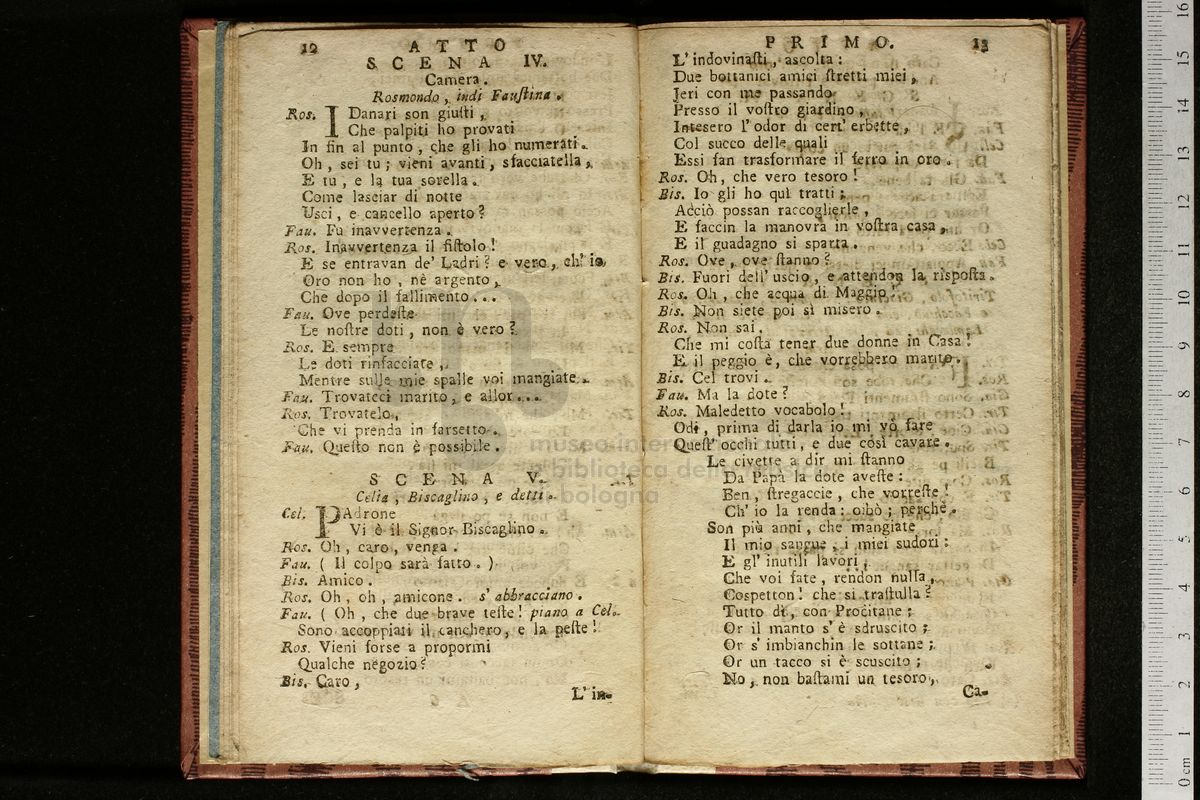 12 ATTO
SCENA IV.
Camera.
Rosmondo, indi Faustina.
Ros. I Danari son giusti,
Che palpiti ho provati
In fin al punto, che gli ho numerati.
Oh, sei tu; vieni avanti, sfacciatella,
E tu, e la tua sorella.
Come lasciar di notte
Usci, e cancello aperto?
Fau. Fu inavvertenza.
Ros. Inavvertenza il fistolo!
E se entravan de' Ladri? e vero, ch' io
Oro non ho, nè argento,
Che dopo il fallimento...
Fau. Ove perdeste
Le nostre doti, non è vero?
Ros. E sempre
Le doti rinfacciate,
Mentre sulle mie spalle voi mangiate.
Fau. Trovateci marito, e allor....
Ros. Trovatelo,
Che vi prenda in farsetto.
Fau. Questo non è possibile.
SCENA V.
Celia, Biscaglino, e detti.
Cel. PAdrone
Vi è il Signor Biscaglino.
Ros. Oh, caro, venga.
Fau. ( Il colpo sarà fatto. )
Bis. Amico.
Ros. Oh, oh, amicone. s' abbracciano.
Fau. ( Oh, che due brave teste! piano a Cel.
Sono accoppiati il canchero, e la peste!
Ros. Vieni forse a propormi
Qualche negozio?
Bis. Caro,
L' in-
PRIMO. 13
L' indovinasti, ascolta:
Due bottanici amici stretti miei,
Jeri con me passando
Presso il vostro giardino,
Intesero l' odor di cert' erbette,
Col succo delle quali
Essi fan trasformare il ferro in oro.
Ros. Oh, che vero tesoro!
Bis. Io gli ho quì tratti;
Acciò possan raccoglierle,
E faccin la manovra in vostra casa,
E il guadagno si sparta.
Ros. Ove, ove stanno?
Bis. Fuori dell' uscio, e attendon la risposta.
Ros. Oh, che acqua di Maggio!
Bis. Non siete poi sì misero.
Ros. Non sai.
Che mi costa tener due donne in Casa!
E il peggio è, che vorrebbero marito.
Bis. Cel trovi.
Fau. Ma la dote?
Ros. Maledetto vocabolo!
Odi, prima di darla io mi vò fare
Quest' occhi tutti, e due così cavare.
Le civette a dir mi stanno
Da Papà la dote aveste:
Ben, stregaccie, che vorreste!
Ch' io la renda: oibò; perchè.
Son più anni, che mangiate
Il mio sangue, i miei sudori:
E gl' inutili lavori,
Che voi fate, rendon nulla,
Cospetton! che si trastulla?
Tutto dì, con Procitane;
Or il manto s' è sdruscito;
Or s' imbianchin le sottane;
Or un tacco si è scuscito;
No, non bastami un tesoro,
Ca-
museo inter
biblioteca della musica
bologna
16
15
14
13
12
11
10
9
8
7
6
5
4
3
2
1
0 cm